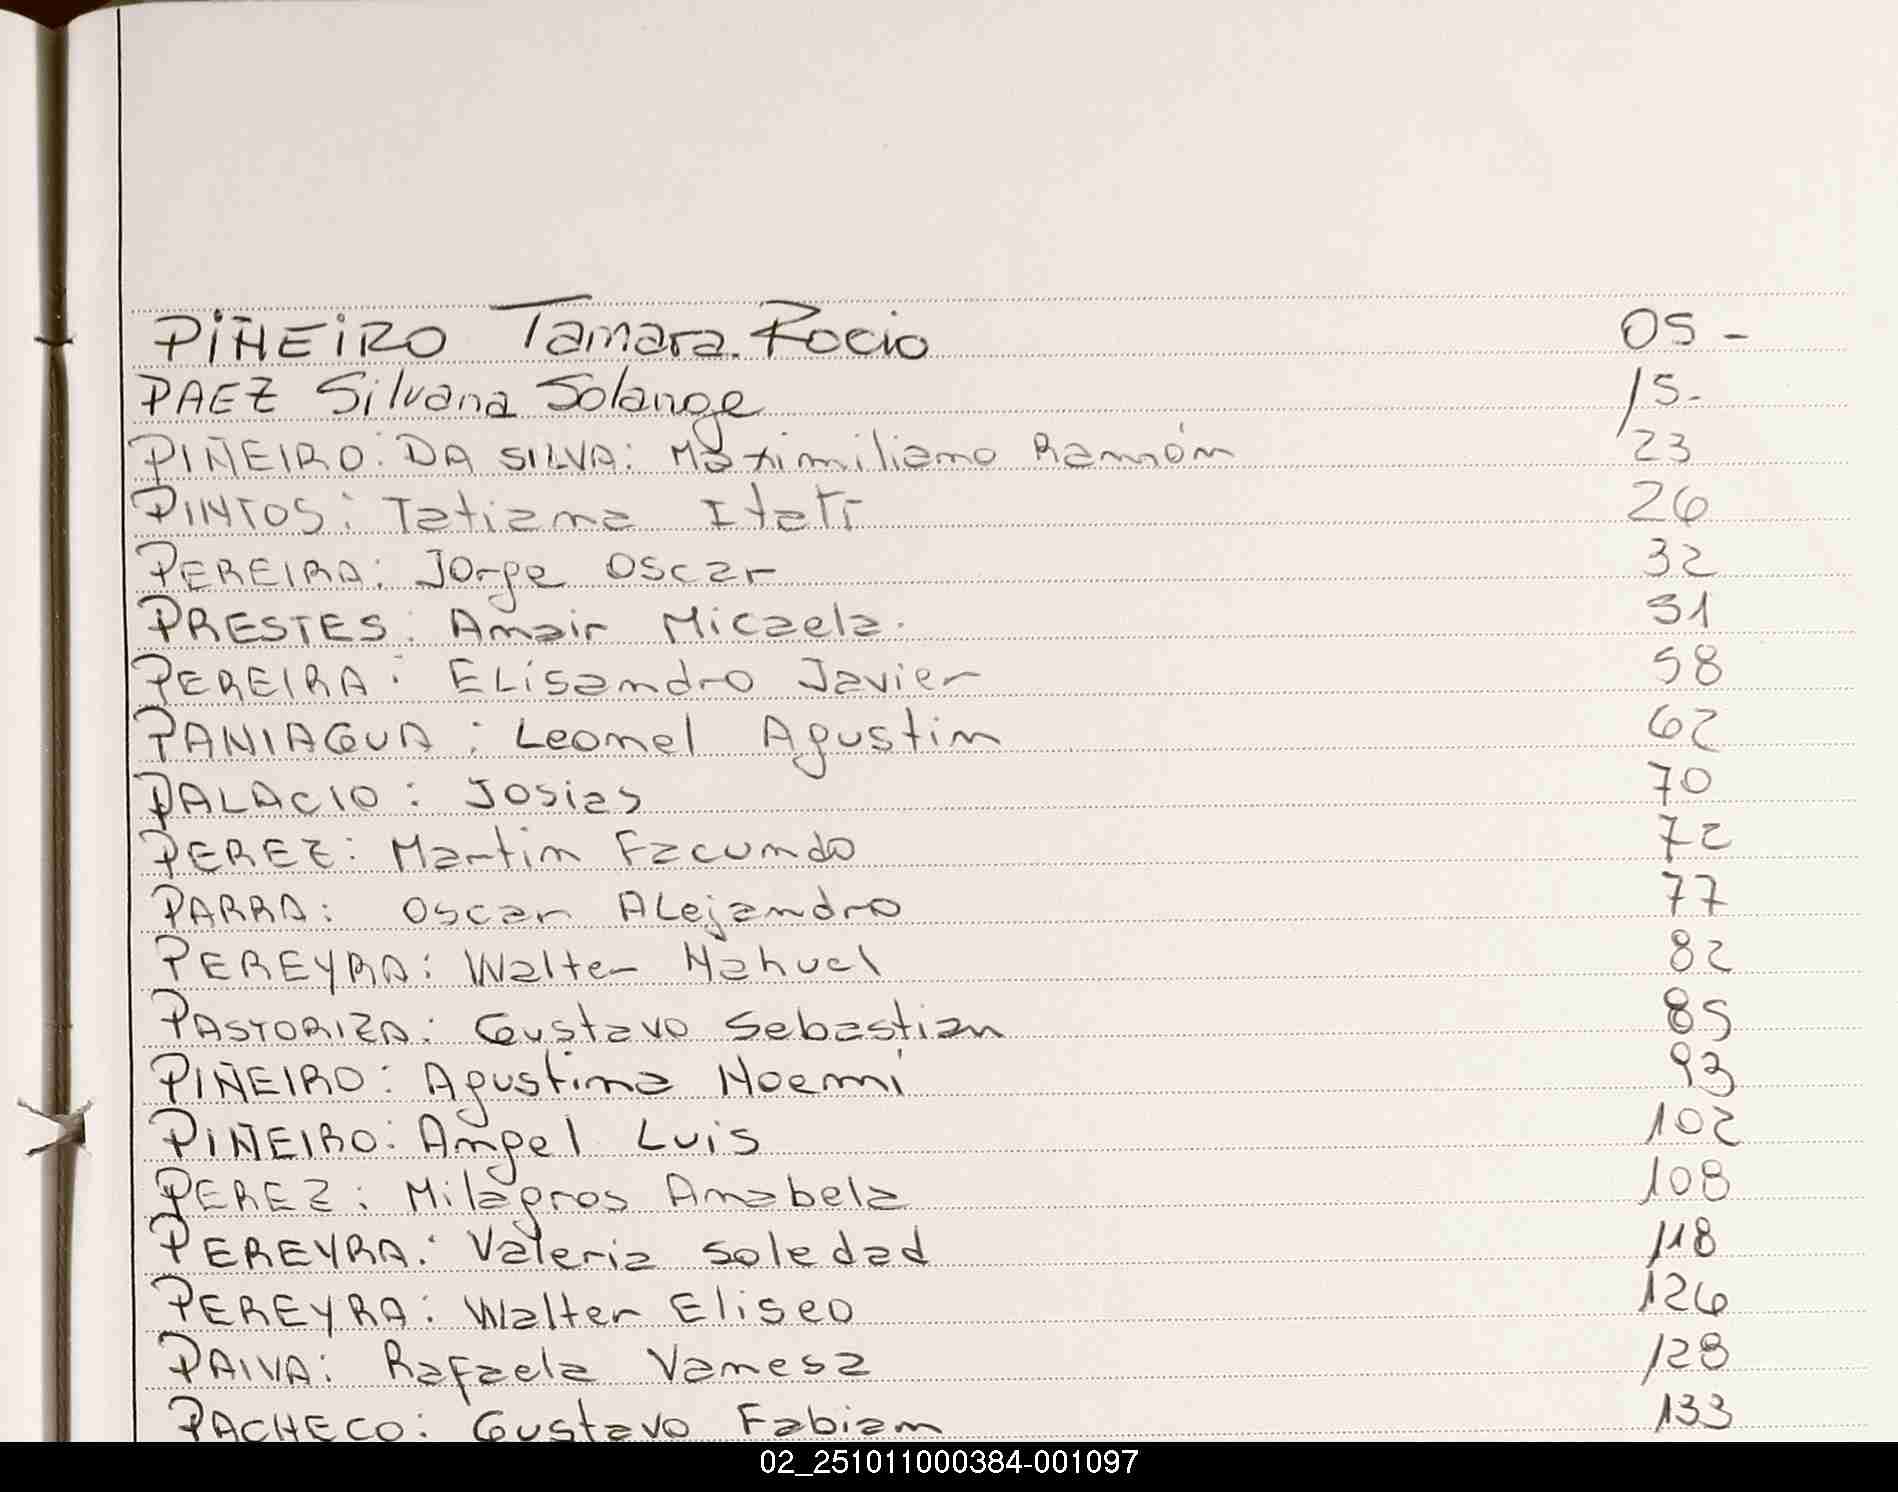 PIÑEIRO Tamara Rocio 05 -
PAEZ Silvana Solange 15-
PIÑEIRO: DA SILVA: Maximiliano Ramón 23
PINTOS: Tatiana Itatí 26
PEREIRA: Jorge Oscar 32
PRESTES: Anair Micaela. 51
PEREIRA: ELisandro Javier 58
PANIAGUA: Leonel Agustin 62
PALACIO: Josias 70
PEREZ: Martin Facundo 72
PARRA: Oscar ALejandro 77
PEREYRA: Walter Nahuel 82
PASTORIZA: Gustavo Sebastian 85
PIÑEIRO: Agustina Noemí 93
PIÑEIRO: Angel Luis 102
PEREZ: Milagros Anabela 108
PEREYRA: Valeria Soledad 118
PEREYRA: Walter Eliseo 126
PAIVA: Rafaela Vanesa 128
PACHECO: Gustavo Fabian 133
02_251011000384-001097